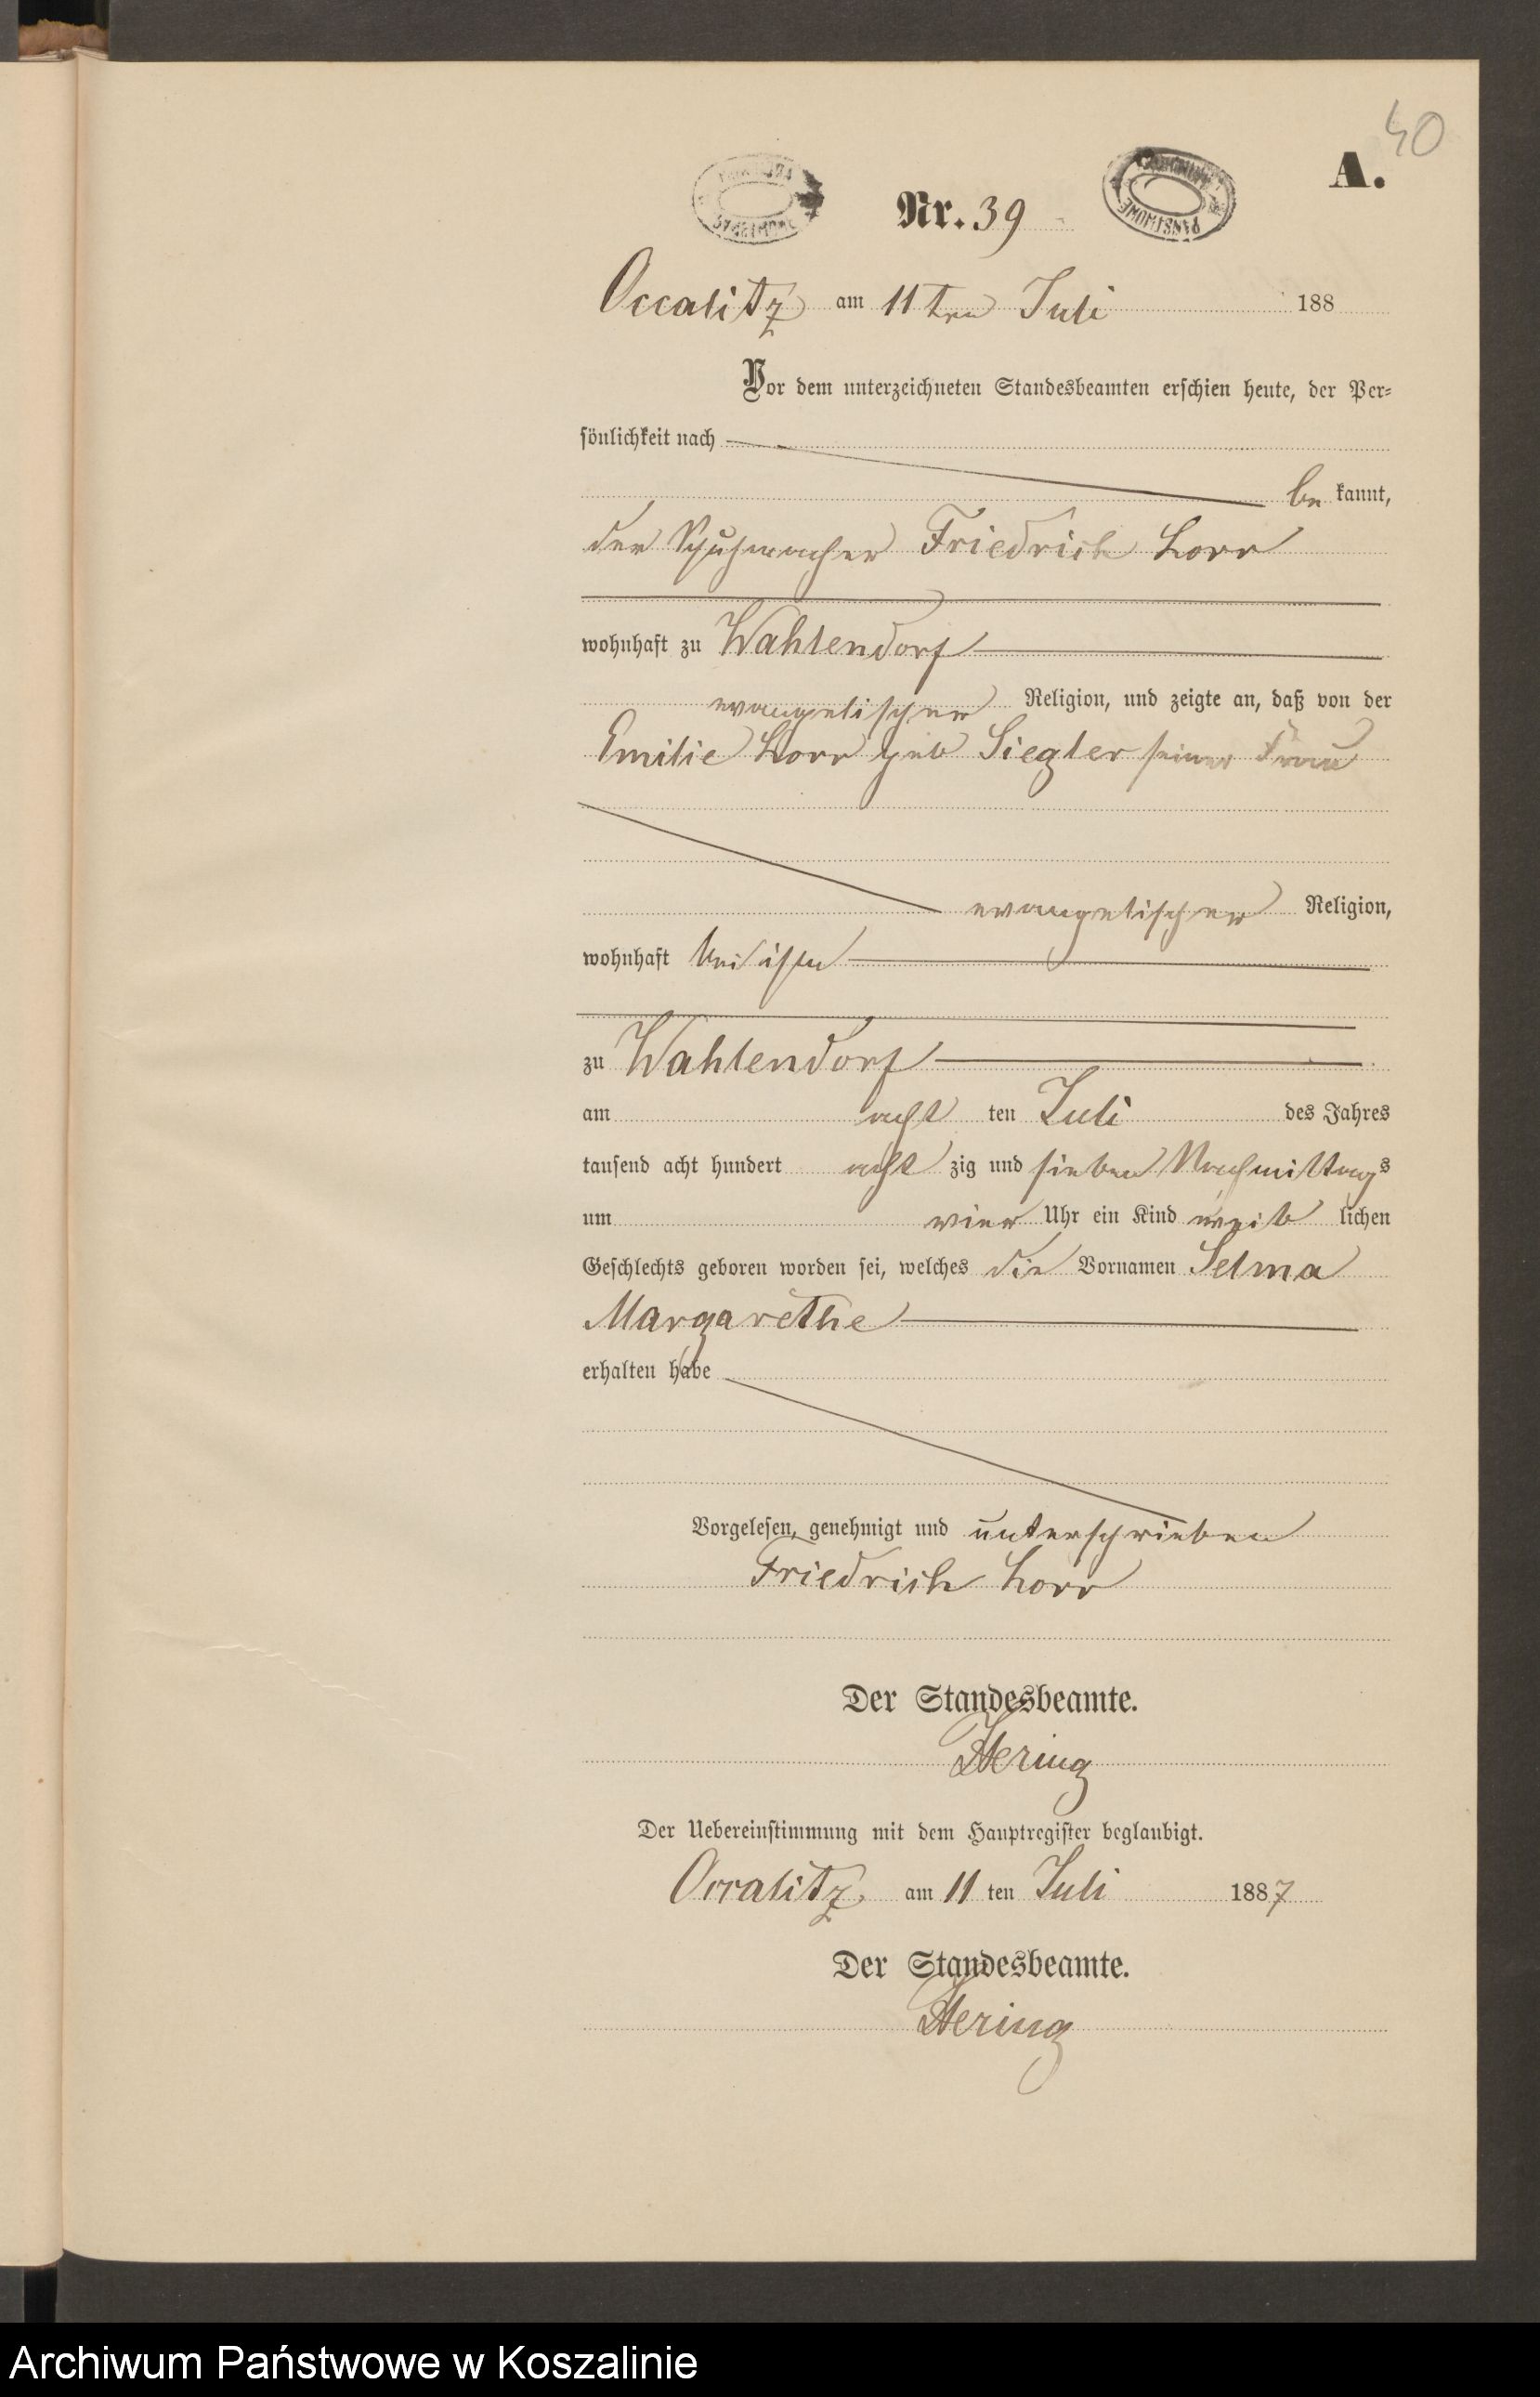 40
A.
Nr. 39
Occalitz am 11ten Juli 188
Vor dem unterzeichneten Standesbeamten erschien heute, der Per-
sönlichkeit nach
be kannt,
der Schuhmacher Friedrich Lorr
wohnhaft zu Wahlendorf
evangelischer Religion, und zeigte an, daß von der
Emilie Lorr geb Siegler seiner Frau
evangelischer Religion,
wohnhaft bei ihm
zu Wahlendorf
am acht ten Juli des Jahres
tausend acht hundert acht zig und sieben Nachmittags
um vier Uhr ein Kind weib lichen
Geschlechts geboren worden sei, welches die Vornamen Selma
Margarethe
erhalten habe
Vorgelesen, genehmigt und unterschrieben
Friedrich Lorr
Der Standesbeamte.
Hering
Der Uebereinstimmung mit dem Hauptregister beglaubigt.
Occalitz, am 11 ten Juli 1887
Der Standesbeamte.
Hering
Archiwum Państwowe w Koszalinie